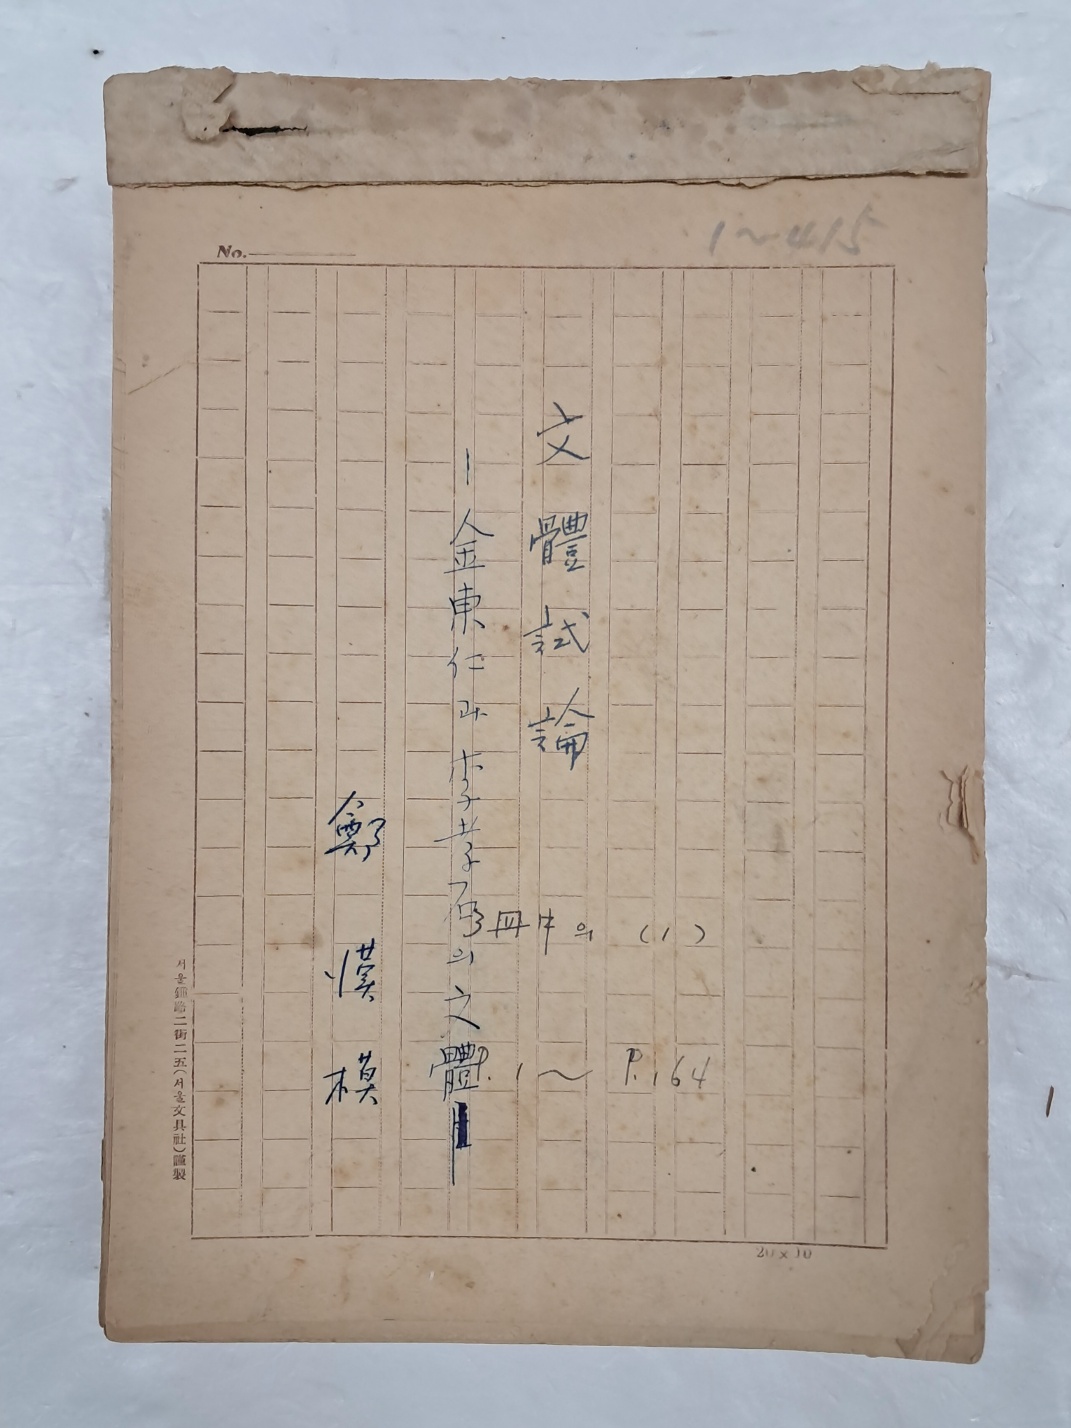 1~415
No.
文體試論
—金東仁과 李孝石의 文體—
鄭漢模
3冊中의 (1)
P.1~P.164
서울鍾路二街二五(서울文具社)謹製
20×10